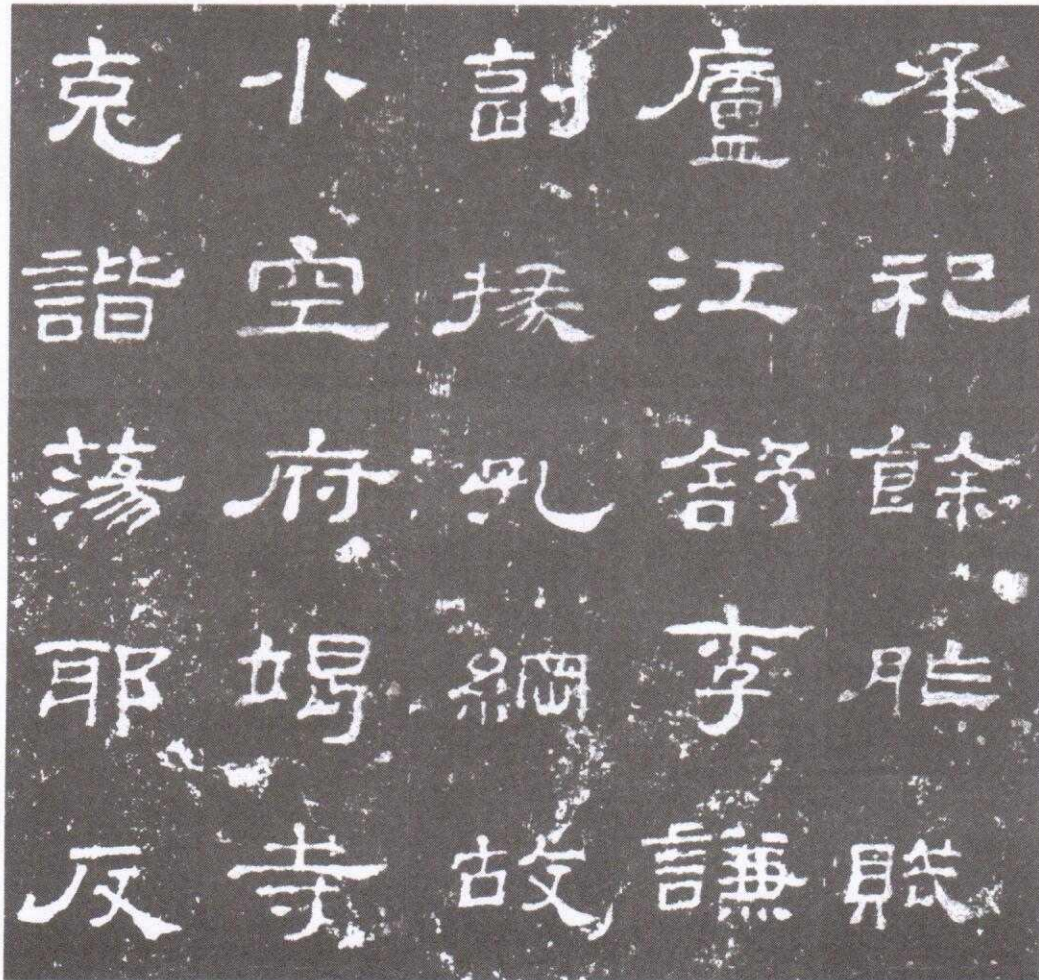 承祀餘胙賜
廬江舒李謙
副掾孔綱故
小空府竭寺
克諧蕩耶反